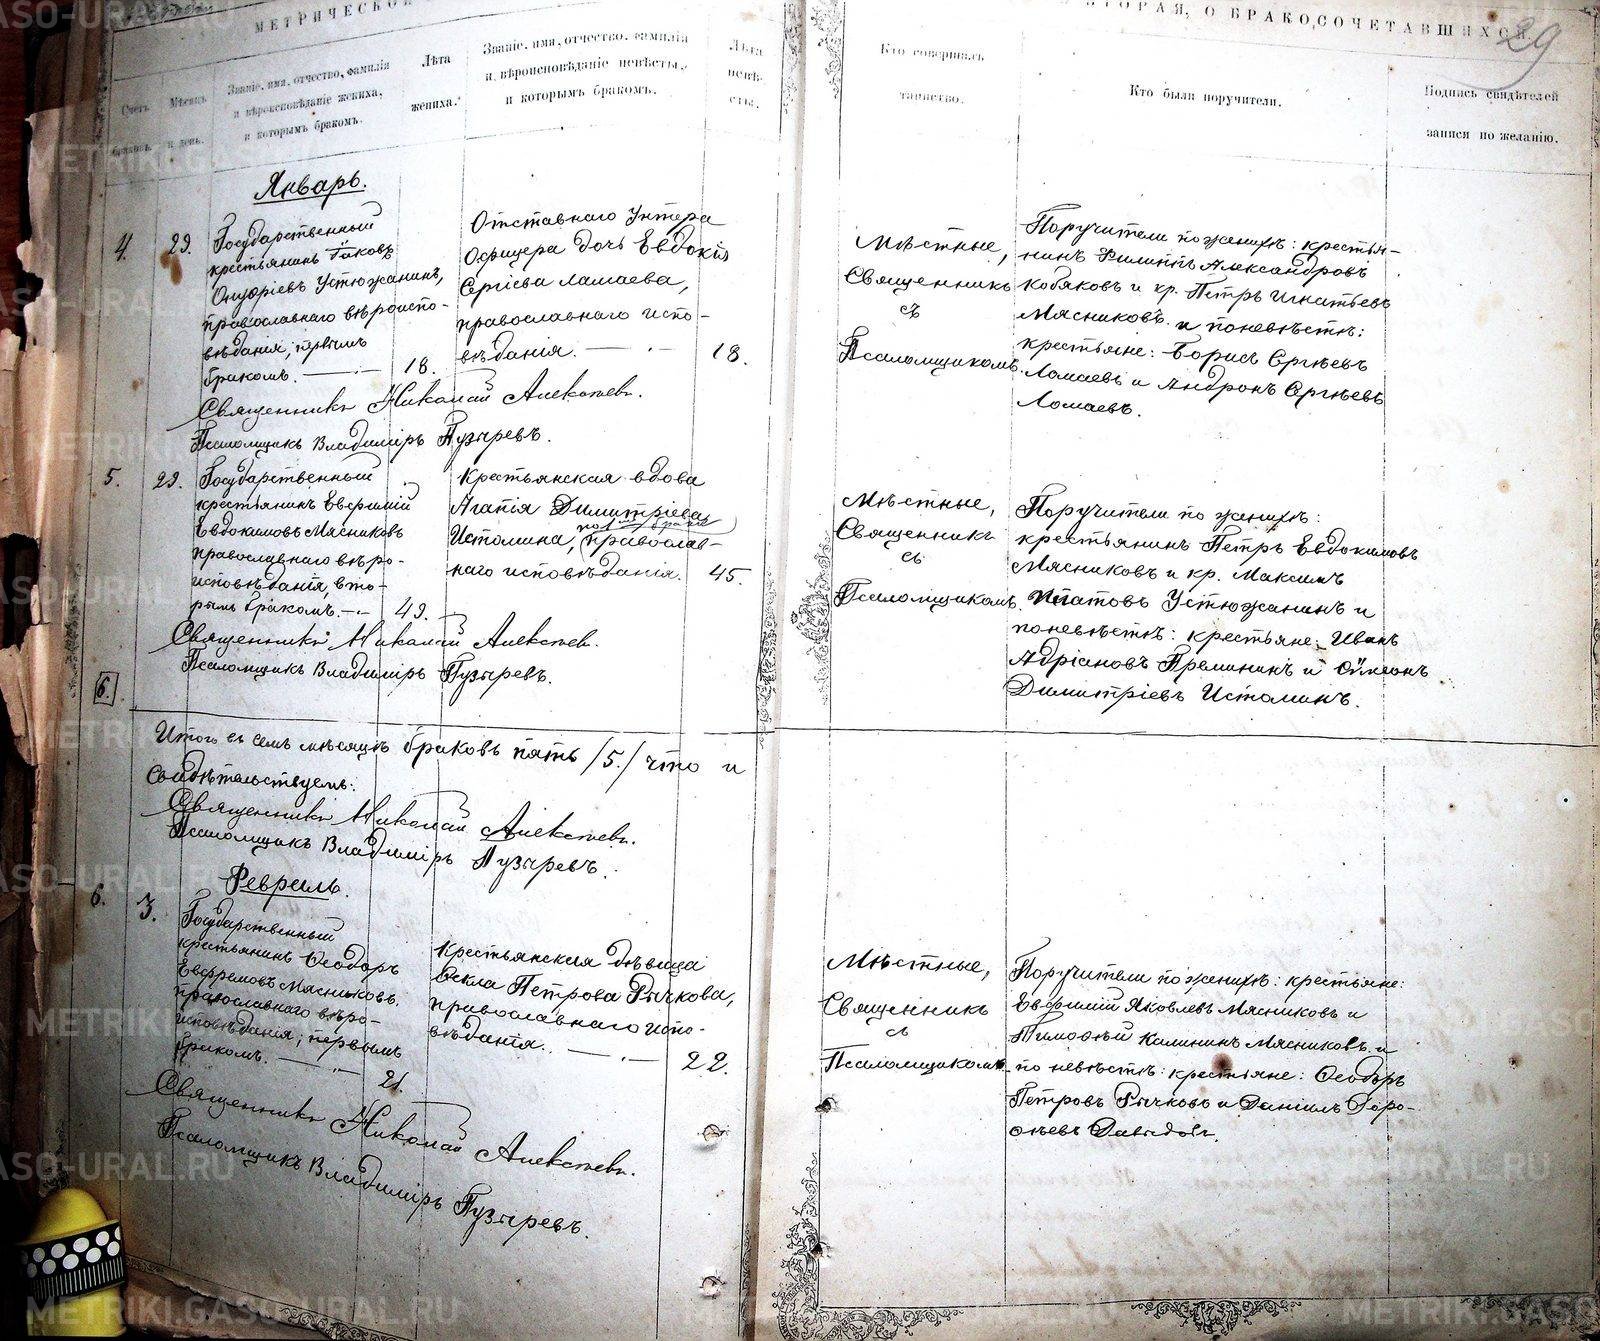 МЕТРИЧЕСКОЙ
ВТОРАЯ, О БРАКОСОЧЕТАВШИХСЯ
29
Счетъ браковъ.
Мѣсяцъ и день.
Званіе, имя, отчество, фамилія
и вѣроисповѣданіе жениха,
и которымъ бракомъ.
Лѣта
жениха.
Званіе, имя, отчество, фамилія
и вѣроисповѣданіе невѣсты,
и которымъ бракомъ.
Лѣта
невѣ-
сты.
Кто совершалъ
таинство.
Кто были поручители.
Подпись свидѣтелей
записи по желанію.
Январь.
4.
29.
Государственный
крестьянинъ Іаковъ
Онуфріевъ Устюжанинъ,
православнаго вѣроиспо-
вѣданія, первымъ
бракомъ.
18.
Отставнаго Унтера
Офицера дочь Евдокія
Сергіева Ламаева,
православнаго испо-
вѣданія.
18.
Мѣстные,
Священникъ
съ
Псаломщикомъ.
Поручители по женихѣ: крестья-
нинъ Филиппъ Александровъ
Кобяковъ и кр. Петръ Игнатьевъ
Мясниковъ и по невѣстѣ:
крестьяне: Борисъ Сергѣевъ
Ламаевъ и Андронъ Сергѣевъ
Ломаевъ.
Священникъ Николай Алексѣевъ.
Псаломщикъ Владиміръ Пузыревъ.
5.
29.
Государственный
крестьянинъ Евфимій
Евдокимовъ Мясниковъ
православнаго вѣро-
исповѣданія, вто-
рымъ бракомъ.
49.
Крестьянская вдова
Агапія Димитріева
Истомина, православ-
наго исповѣданія.
45.
Мѣстные,
Священникъ
съ
Псаломщикомъ.
Поручители по женихѣ:
крестьянинъ Петръ Евдокимовъ
Мясниковъ и кр. Максимъ
Ипатовъ Устюжанинъ и
по невѣстѣ: крестьяне: Иванъ
Адріановъ Преминин и Сѵмеонъ
Димитріевъ Истоминъ.
Священникъ Николай Алексѣевъ.
Псаломщикъ Владиміръ Пузыревъ.
6.
Итого въ семъ мѣсяцѣ браковъ пять /5./ что и
свидѣтельствуемъ:
Священникъ Николай Алексѣевъ.
Псаломщикъ Владиміръ Пузыревъ.
Февраль.
6.
3.
Государственный
крестьянинъ Ѳеодоръ
Евфремовъ Мясниковъ
православнаго вѣро-
исповѣданія, первымъ
бракомъ.
21.
Крестьянская дѣвица
Ѳекла Петрова Рычкова,
православнаго испо-
вѣданія.
22.
Мѣстные,
Священникъ
съ
Псаломщикомъ.
Поручители по женихѣ: крестьяне:
Евфимій Яковлевъ Мясниковъ и
Тимоѳей Калининъ Мясниковъ и
по невѣстѣ: крестьяне: Ѳеодоръ
Петровъ Рычковъ и Даніилъ Доро-
ѳеевъ
Священникъ Николай Алексѣевъ.
Псаломщикъ Владиміръ Пузыревъ.
METRIKI.GASO-URAL.RU